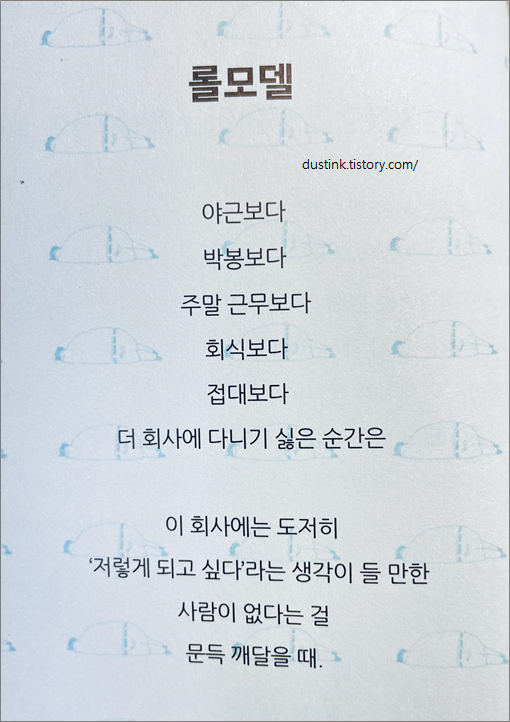 롤모델
dustink.tistory.com/
야근보다
박봉보다
주말 근무보다
회식보다
접대보다
더 회사에 다니기 싫은 순간은
이 회사에는 도저히
‘저렇게 되고 싶다’라는 생각이 들 만한
사람이 없다는 걸
문득 깨달을 때.